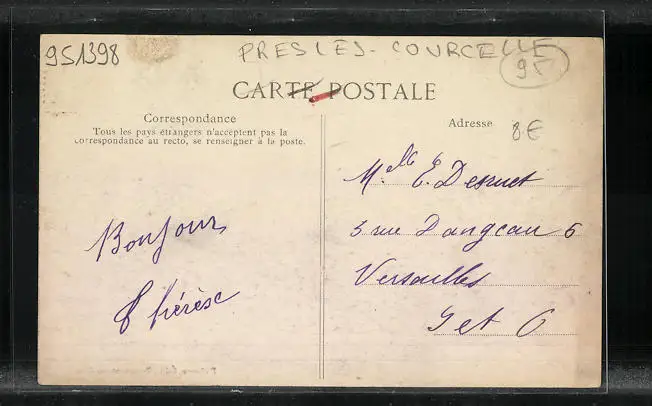 951398
PRESLES-COURCELLE
95
CARTE POSTALE
Correspondance
Tous les pays étrangers n'acceptent pas la
correspondance au recto, se renseigner à la poste.
Adresse
8€
Mlle E. Desruet
3 rue Dangeau 6
Versailles
S et O
Bonjour
Thérèse